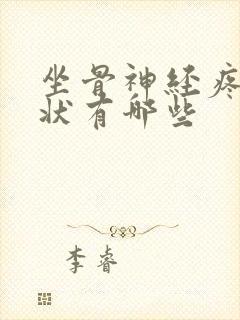 坐骨神经疼
状有哪些
李睿